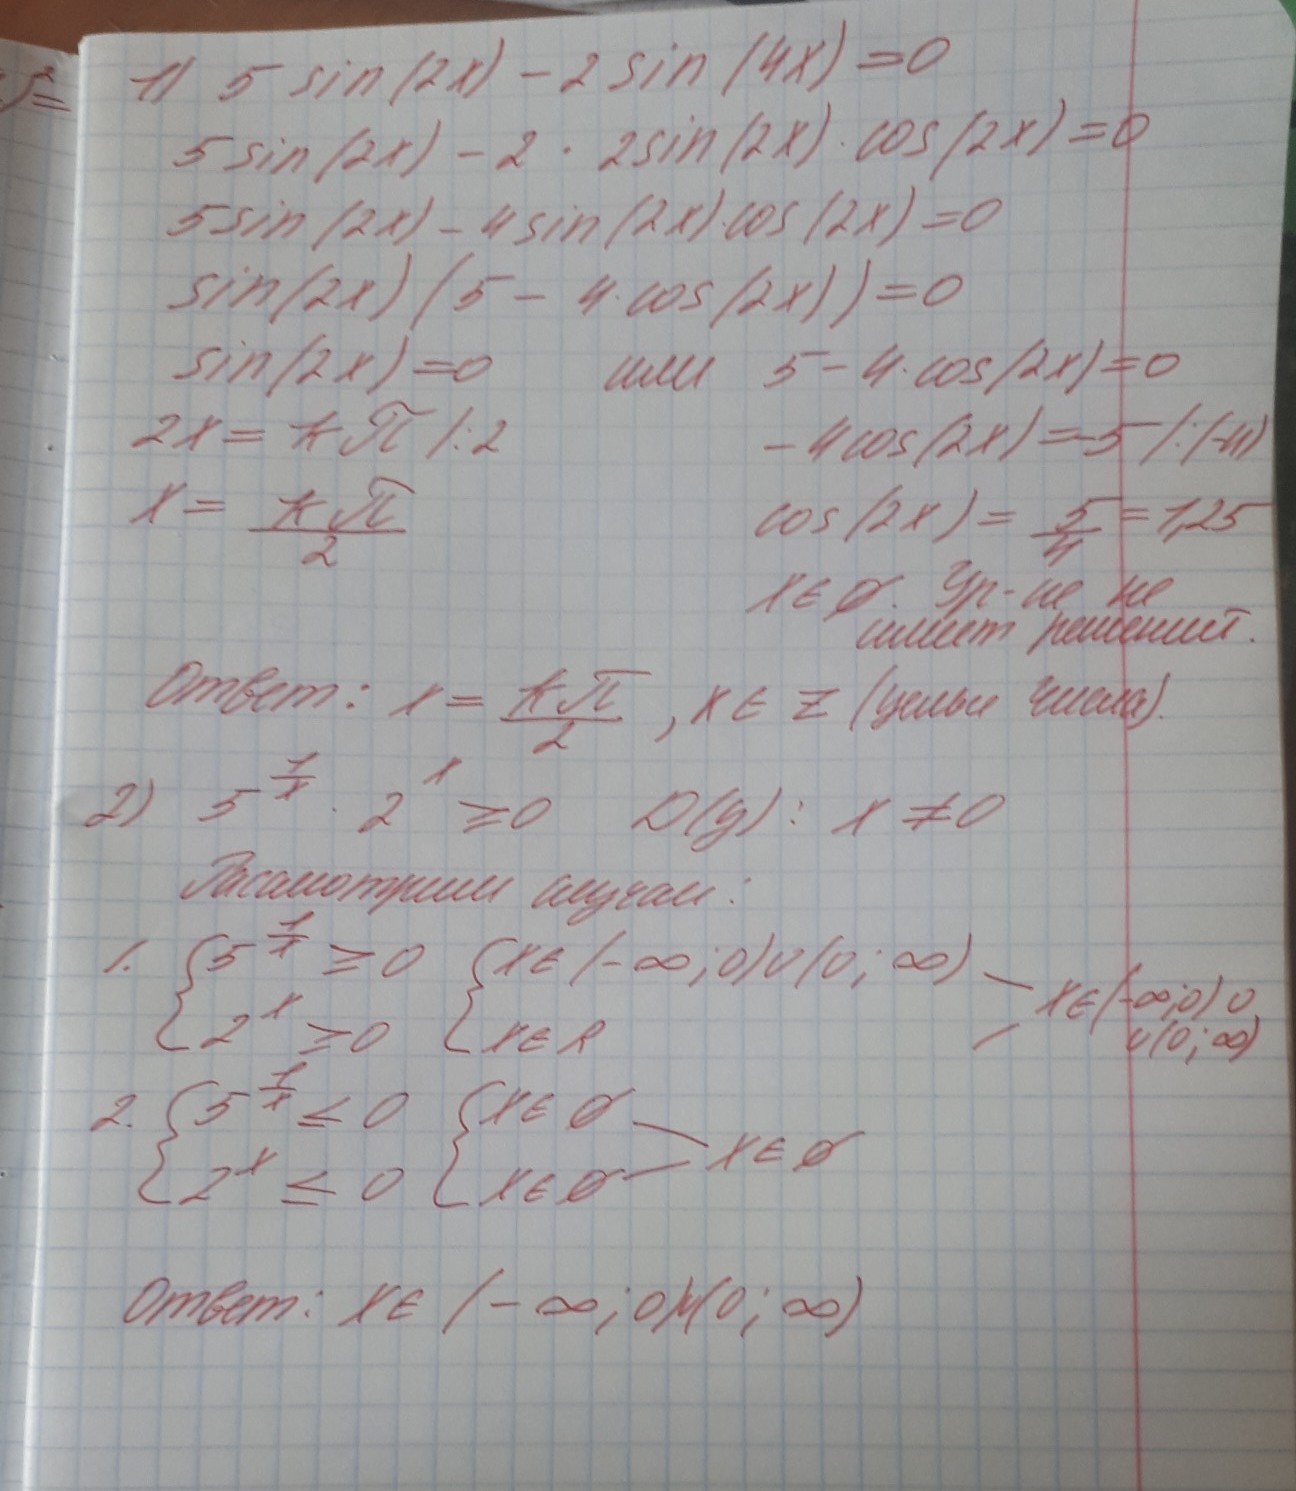 )²=
1) 5 sin(2x) - 2 sin(4x) = 0
5 sin(2x) - 2 · 2sin(2x) · cos(2x) = 0
5sin(2x) - 4sin(2x)·cos(2x) = 0
sin(2x) (5 - 4·cos(2x)) = 0
sin(2x) = 0 или 5 - 4·cos(2x) = 0
2x = kπ /:2 -4cos(2x) = -5 /:(-4)
x = kπ/2 cos(2x) = 5/4 = 1,25
x ∈ ∅. Ур-ие не
имеет решений.
Ответ: x = kπ/2, x ∈ Z (целые числа).
2) 5^(1/x) · 2^x ≥ 0 D(y): x ≠ 0
Рассмотрим случаи:
1. { 5^(1/x) ≥ 0 { x ∈ (-∞; 0) ∪ (0; ∞) x ∈ (-∞; 0) ∪
2^x ≥ 0 x ∈ R ∪ (0; ∞)
2. { 5^(1/x) ≤ 0 { x ∈ ∅
2^x ≤ 0 x ∈ ∅ x ∈ ∅
Ответ: x ∈ (-∞; 0) ∪ (0; ∞)